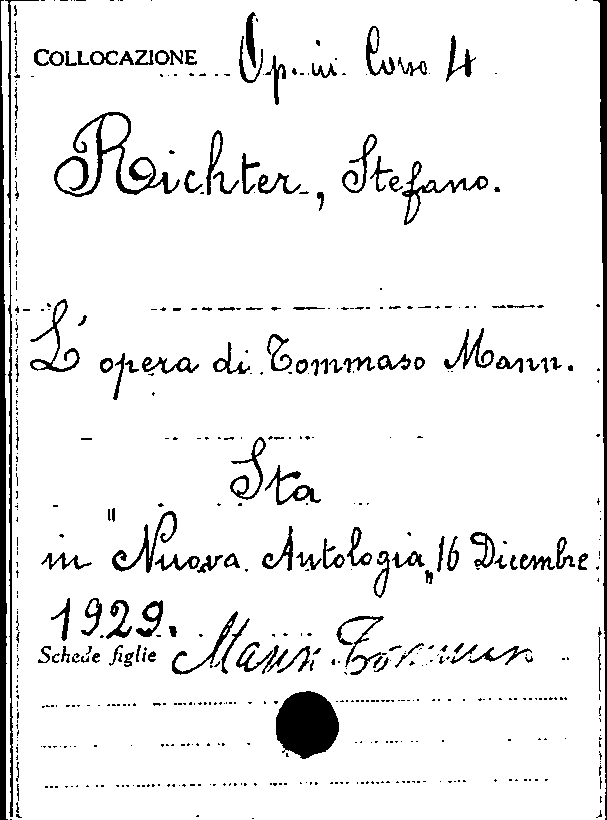 COLLOCAZIONE Op. in Corso 4
Richter, Stefano.
L'opera di Tommaso Mann.
Sta
in "Nuova Antologia„ 16 Dicembre
1929.
Schede figlie Mann Tommaso